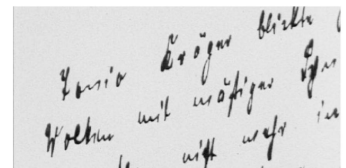 Tonio Kröger blickte
Wolken mit mäßiger
nicht mehr